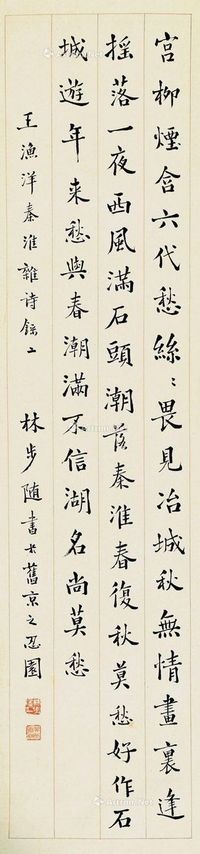 宮柳煙含六代愁絲〻畏見冶城秋無情畫裏逢
搖落一夜西風滿石頭潮落秦淮春復秋莫愁好作石
城遊年來愁與春潮滿不信湖名尚莫愁
王漁洋秦淮雜詩錄二
林步隨書於舊京之忍園